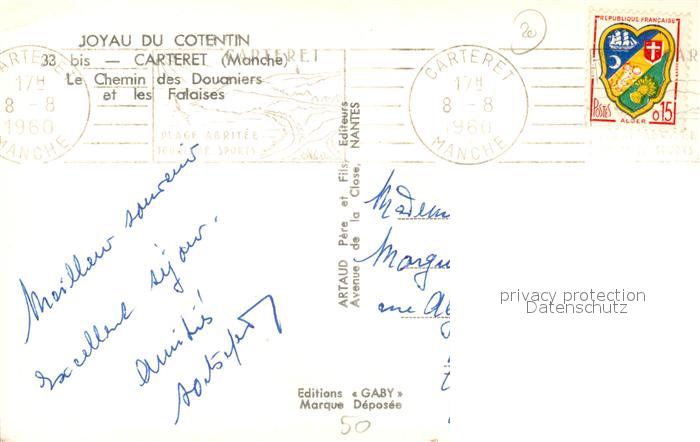 JOYAU DU COTENTIN
33 bis — CARTERET (Manche)
Le Chemin des Douaniers
et les Falaises
CARTERET
17H
8 - 8
1960
MANCHE
CARTERET
PLAGE ABRITÉE
TOUS LES SPORTS
CARTERET
17H
8 - 8
1960
MANCHE
20
REPUBLIQUE FRANÇAISE
POSTES
0,15
ALGER
ARTAUD Père et Fils, Editeurs
Avenue de la Close, NANTES
Meilleur souvenir
Excellent séjour.
Amitiés
Madem
Margu
privacy protection
Datenschutz
Editions « GABY »
Marque Déposée
50